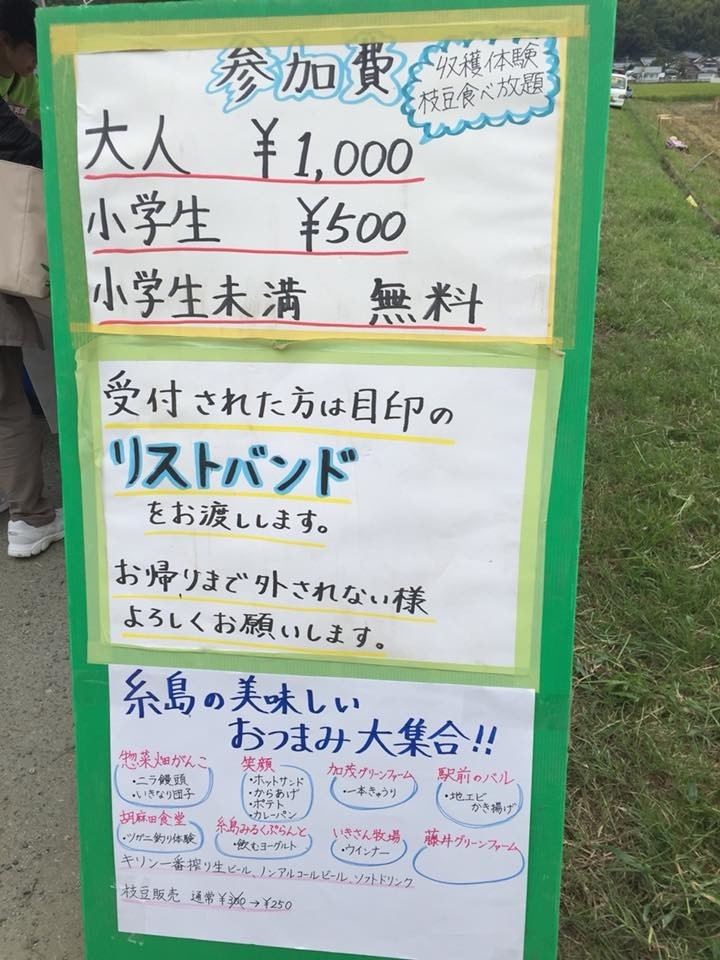 参加費
収穫体験
枝豆食べ放題
大人 ¥1,000
小学生 ¥500
小学生未満 無料
受付された方は目印の
リストバンド
をお渡しします。
お帰りまで外されない様
よろしくお願いします。
糸島の美味しい
おつまみ大集合!!
惣菜畑がんこ
・ニラ饅頭
・いきなり団子
笑顔
・ホットサンド
・からあげ
・ポテト
・カレーパン
加茂グリーンファーム
・一本きゅうり
駅前のバル
・地エビ
かき揚げ
胡麻田食堂
・ツガニ釣り体験
糸島みるくぷらんと
・飲むヨーグルト
いきさん牧場
・ウインナー
藤井グリーンファーム
キリン一番搾り生ビール、ノンアルコールビール、ソフトドリンク
枝豆販売 通常¥300→¥250